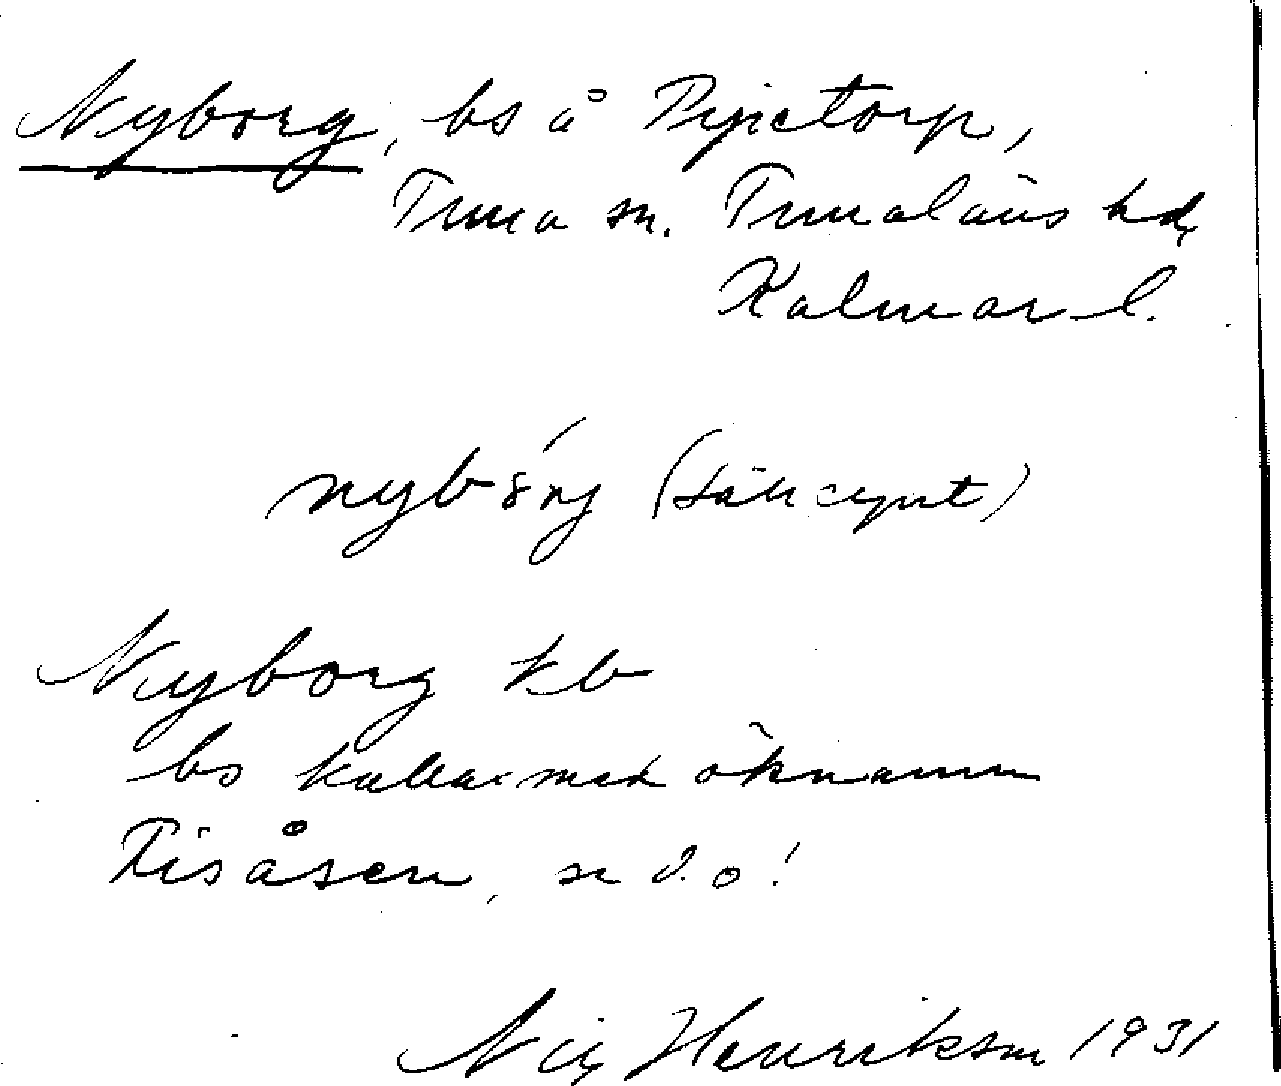 Nyborg, bs å Pipetorp,
Tuna sn. Tunaläns hd,
Kalmar l.
(sällsynt)
Nyborg kb
bs kallas med öknamn
Fisåsen, se d. o!
Nils Henriksson 1931